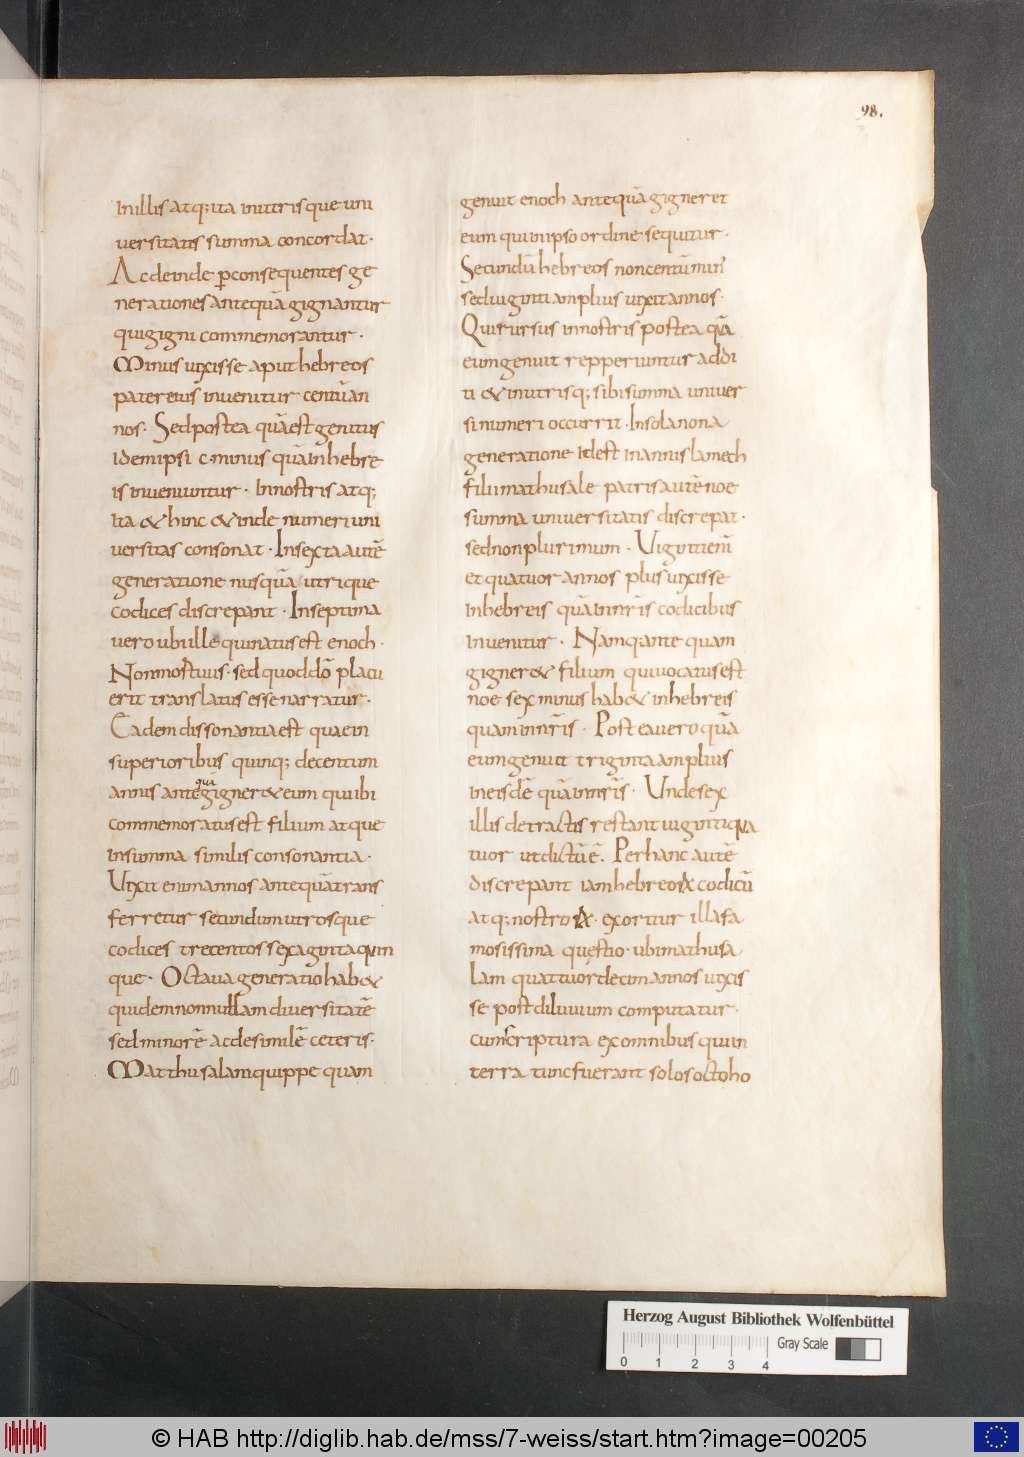 98.
in illis atq; ita in utrisque uni
uersitatis summa concordat·
Ac deinde ꝑ consequentes ge
nerationes antequā gignantur
qui gigni commemorantur·
Minus uixisse aput hebreos
pater eius inuenitur centū an
nos· Sed postea quā est genitus
idem ipsi c· minus quā in hebre
is inueniuntur· In nostris atq;
ita & hinc & inde numeri uni
uersitas consonat· In sexta autē
generatione nusquā utrique
codices discrepant· In septima
uero ubi ille qui natus est enoch·
Non mortuus· sed quod dō placu
erit translatus esse narratur·
Eadem dissonantia est quae in
superioribus quinq; de centum
annis ante quā gigner& eum qui ibi
commemoratus est filium atque
in summa similis consonantia·
Uixit enim annos antequā trans
ferretur secundum utrosque
codices trecentos sexaginta quin
que· Octaua generatio hab&
quidem nonnullam diuersitatē
sed minorē ac desimilē ceteris·
Matthusalam quippe quam
genuit enoch antequā gigneret
eum qui in ipso ordine sequitur·
Secundū hebreos non centū min'
sed uiginti amplius uixit annos·
Qui rursus in nostris postea quā
eum genuit repperiuntur addi
ti & in utrisq; sibi summa uniuer
si numeri occurrit· In sola nona
generatione id est in annis lamech
filii mathusale patris autē noe
summa uniuersitatis discrepat·
sed non plurimum· Uiginti enī
et quatuor annos plus uixisse
in hebreis quā in nr̄is codicibus
inuenitur· Namq; ante quam
gigner& filium qui uocatus est
noe sex minus hab& in hebreis
quam in nr̄is· Postea uero quā
eum genuit triginta amplius
in eisdē quā in nr̄is· Unde sex
illis detractis restant uiginti qua
tuor ut dictū ē. Per hanc autē
discrepantiam hebreoꝝ codicū
atq; nostroꝝ· exoritur illa fa
mosissima quęstio· ubi mathusa
lam quattuordecim annos uixis
se post diluuium computatur·
cum scriptura ex omnibus qui in
terra tunc fuerant solos octo ho
Herzog August Bibliothek Wolfenbüttel
Gray Scale
0 1 2 3 4
© HAB http://diglib.hab.de/mss/7-weiss/start.htm?image=00205